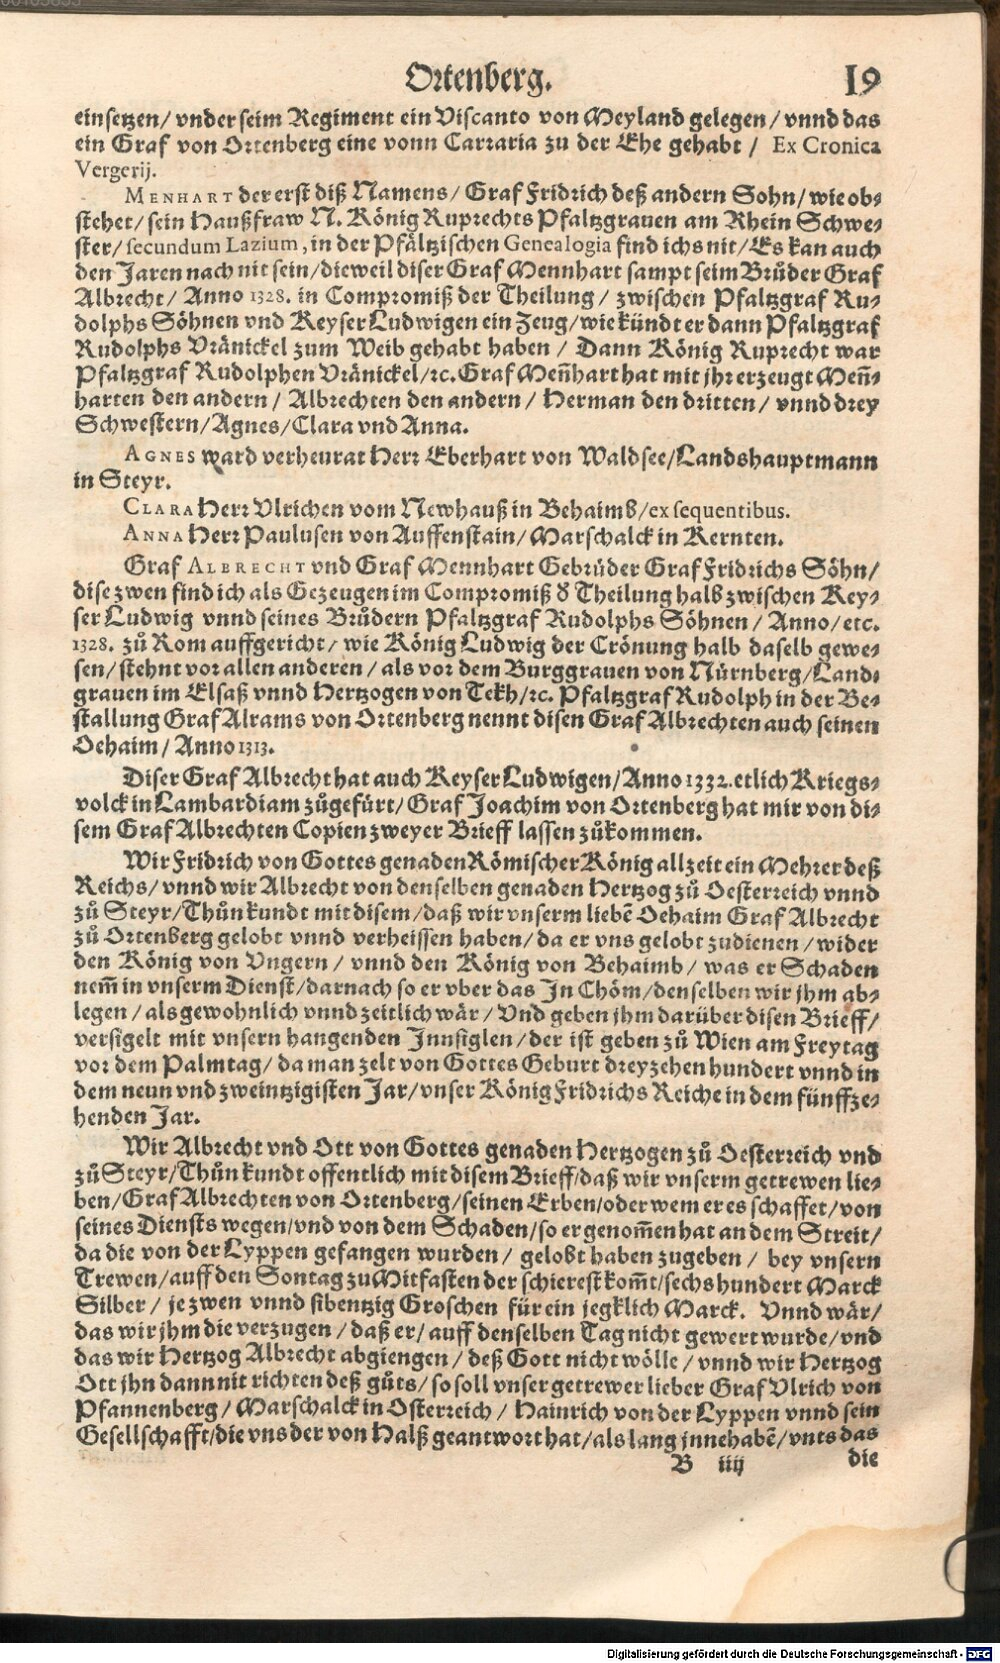 Ortenberg. 19
einsetzen/ vnder seim Regiment ein Viscanto von Meyland gelegen/ vnnd das
ein Graf von Ortenberg eine vonn Carraria zu der Ehe gehabt / Ex Cronica
Vergerij.
MENHART der erst diß Namens/ Graf Fridrich deß andern Sohn/ wie ob⸗
stehet/ sein Haußfraw N. König Ruprechts Pfaltzgrauen am Rhein Schwe⸗
ster/ secundum Lazium, in der Pfältzischen Genealogia find ichs nit/ Es kan auch
den Jaren nach nit sein/ dieweil diser Graf Mennhart sampt seim Brůder Graf
Albrecht/ Anno 1328. in Compromiß der Theilung / zwischen Pfaltzgraf Ru⸗
dolphs Söhnen vnd Keyser Ludwigen ein Zeug/ wie kündt er dann Pfaltzgraf
Rudolphs Vränickel zum Weib gehabt haben / Dann König Ruprecht war
Pfaltzgraf Rudolphen Vränickel/ ꝛc. Graf Meñhart hat mit jhr erzeugt Meñ⸗
harten den andern / Albrechten den andern / Herman den dritten / vnnd drey
Schwestern/ Agnes/ Clara vnd Anna.
AGNES ward verheurat Herr Eberhart von Waldsee/ Landshauptmann
in Steyr.
CLARA Herr Vlrichen vom Newhauß in Behaimb/ ex sequentibus.
ANNA Herr Paulusen von Auffenstain/ Marschalck in Kernten.
Graf ALBRECHT vnd Graf Mennhart Gebrůder Graf Fridrichs Söhn/
dise zwen find ich als Gezeugen im Compromiß d Theilung halb zwischen Key⸗
ser Ludwig vnnd seines Brůdern Pfaltzgraf Rudolphs Söhnen / Anno/ etc.
1328. zů Rom auffgericht/ wie König Ludwig der Crönung halb daselb gewe⸗
sen/ stehnt vor allen anderen / als vor dem Burggrauen von Nürnberg/ Land⸗
grauen im Elsaß vnnd Hertzogen von Tekh/ ꝛc. Pfaltzgraf Rudolph in der Be⸗
stallung Graf Alrams von Ortenberg nennt disen Graf Albrechten auch seinen
Oehaim / Anno 1313.
Diser Graf Albrecht hat auch Keyser Ludwigen/ Anno 1332. etlich Kriegs⸗
volck in Lambardiam zůgefürt/ Graf Joachim von Ortenberg hat mir von di⸗
sem Graf Albrechten Copien zweyer Brieff lassen zůkommen.
Wir Fridrich von Gottes genaden Römischer König allzeit ein Mehrer deß
Reichs/ vnnd wir Albrecht von denselben genaden Hertzog zů Oesterreich vnnd
zů Steyr/ Thůn kundt mit disem/ daß wir vnserm liebẽ Oehaim Graf Albrecht
zů Ortenberg gelobt vnnd verheissen haben/ da er vns gelobt zudienen / wider
den König von Vngern / vnnd den König von Behaimb / was er Schaden
nem̃ in vnserm Dienst/ darnach so er vber das In Chöm/ denselben wir jhm ab⸗
legen / als gewohnlich vnnd zeitlich wär / Vnd geben jhm darüber disen Brieff/
versigelt mit vnsern hangenden Innsiglen / der ist geben zů Wien am Freytag
vor dem Palmtag/ da man zelt von Gottes Geburt dreyzehen hundert vnnd in
dem neun vnd zweintzigisten Jar/ vnser König Fridrichs Reiche in dem fünffze⸗
henden Jar.
Wir Albrecht vnd Ott von Gottes genaden Hertzogen zů Oesterreich vnd
zů Steyr/ Thůn kundt offentlich mit disem Brieff/ daß wir vnserm getrewen lie⸗
ben/ Graf Albrechten von Ortenberg/ seinen Erben/ oder wem er es schaffet/ von
seines Diensts wegen/ vnd von dem Schaden/ so er genom̃en hat an dem Streit/
da die von der Lyppen gefangen wurden / gelobt haben zugeben / bey vnsern
Trewen/ auff den Sontag zu Mitfasten der schierest kom̃t/ sechs hundert Marck
Silber / je zwen vnnd sibentzig Groschen für ein jegklich Marck. Vnnd wär/
das wir jhm die verzugen / daß er/ auff denselben Tag nicht gewert wurde/ vnd
das wir Hertzog Albrecht abgiengen / deß Gott nicht wölle / vnnd wir Hertzog
Ott jhn dann nit richten deß gůts/ so soll vnser getrewer lieber Graf Vlrich von
Pfannenberg / Marschalck in Osterreich / Hainrich von der Lyppen vnnd sein
Gesellschafft/ die vns der von Halß geantwort hat/ als lang jnnehabẽ/ vnts das
B iiij die
Digitalisierung gefördert durch die Deutsche Forschungsgemeinschaft - DFG